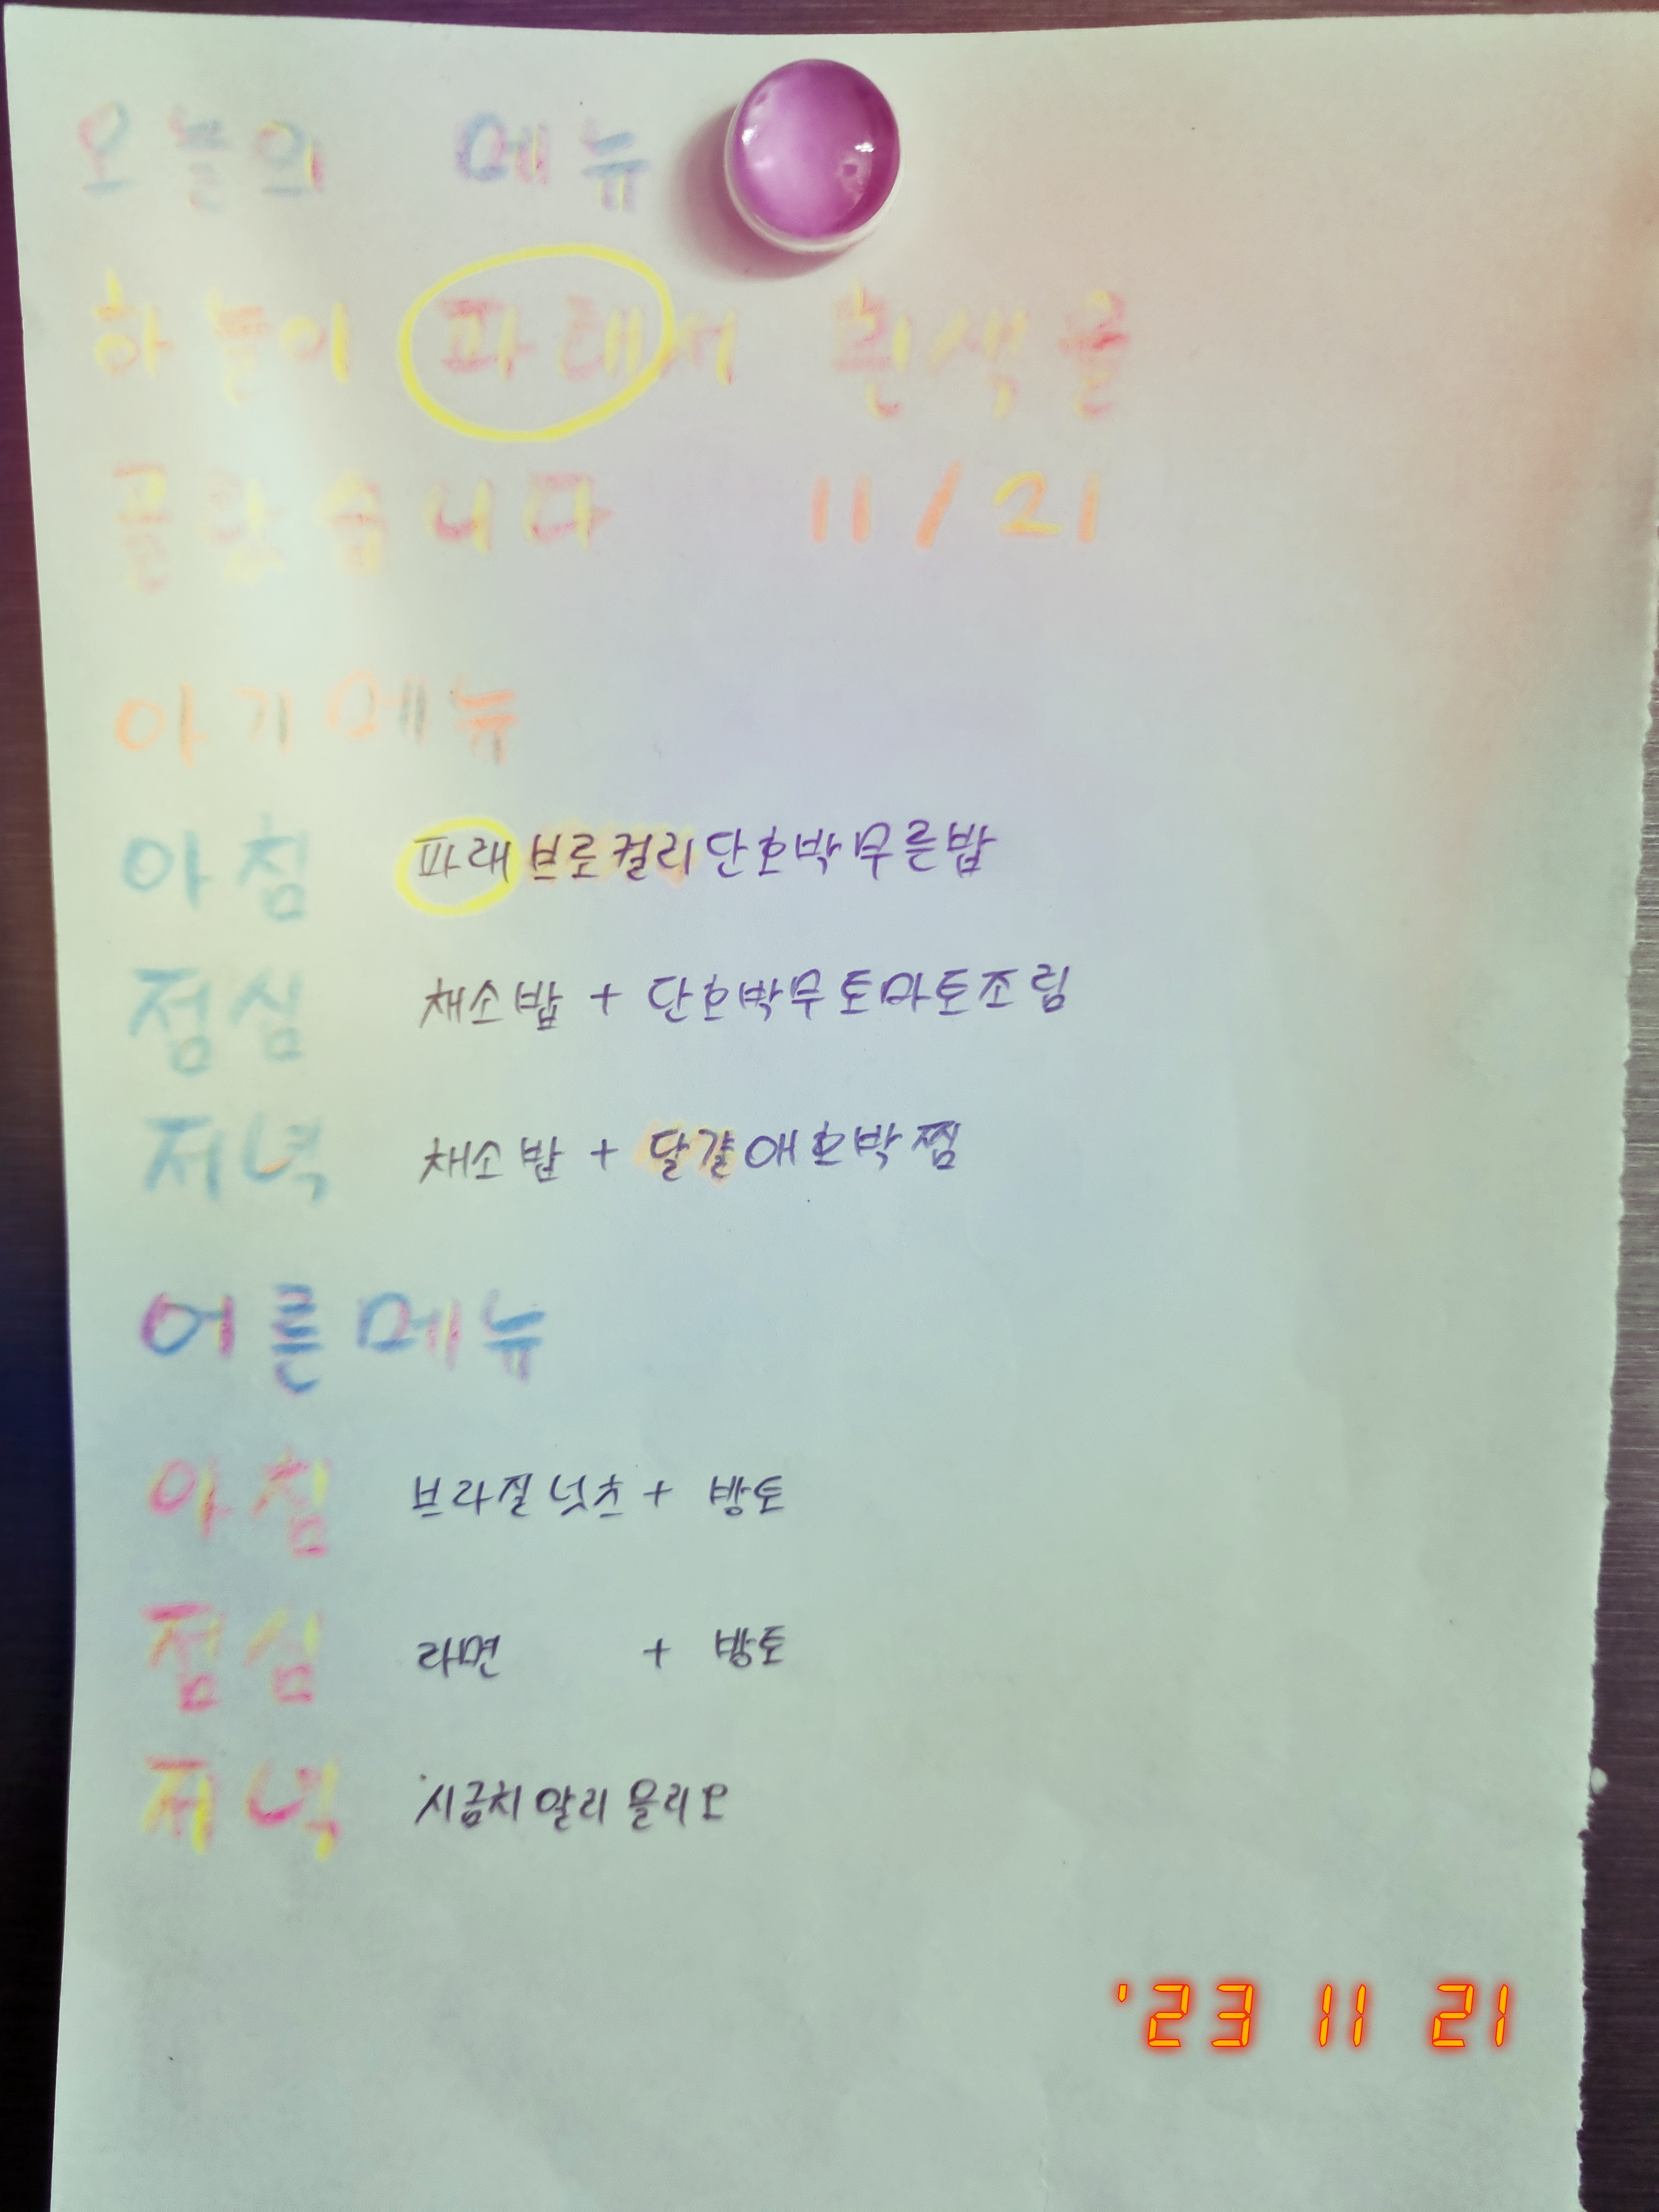 오늘의 메뉴
하늘이 파래서 흰색을
골랐습니다 11/21
아기메뉴
아침 파래브로컬리단호박무른밥
점심 채소밥 + 단호박무토마토조림
저녁 채소밥 + 달걀애호박찜
어른메뉴
아침 브라질넛츠 + 방토
점심 라면 + 방토
저녁 시금치알리올리오
'23 11 21